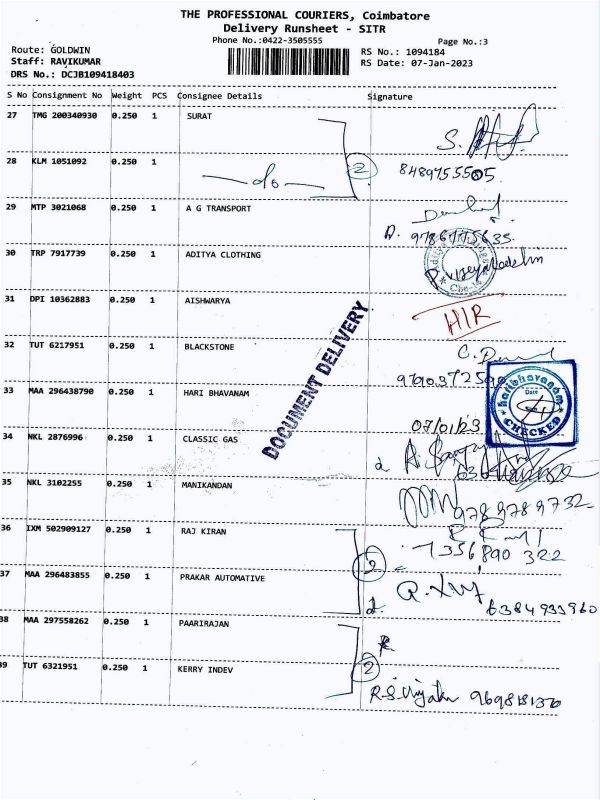 THE PROFESSIONAL COURIERS, Coimbatore
Delivery Runsheet - SITR
Phone No.:0422-3505555
Page No.:3
Route: GOLDWIN
RS No.: 1094184
Staff: RAVIKUMAR
RS Date: 07-Jan-2023
DRS No.: DCJB109418403
S No Consignment No Weight PCS Consignee Details Signature
27 TMG 200340930 0.250 1 SURAT
28 KLM 1051092 0.250 1 -do- 2
8489755505
29 MTP 3021068 0.250 1 A G TRANSPORT
30 TRP 7917739 0.250 1 ADITYA CLOTHING
31 DPI 10362883 0.250 1 AISHWARYA
H/R
32 TUT 6217951 0.250 1 BLACKSTONE
DOCUMENT DELIVERY
33 MAA 296438790 0.250 1 HARI BHAVANAM
haribhavanam
Date
CHECKED
07/01/23
34 NKL 2876996 0.250 1 CLASSIC GAS
35 NKL 3102255 0.250 1 MANIKANDAN
9789789732
36 IXM 502909127 0.250 1 RAJ KIRAN
7356890322
37 MAA 296483855 0.250 1 PRAKAR AUTOMATIVE
6384933960
38 MAA 297558262 0.250 1 PAARIRAJAN
2
39 TUT 6321951 0.250 1 KERRY INDEV